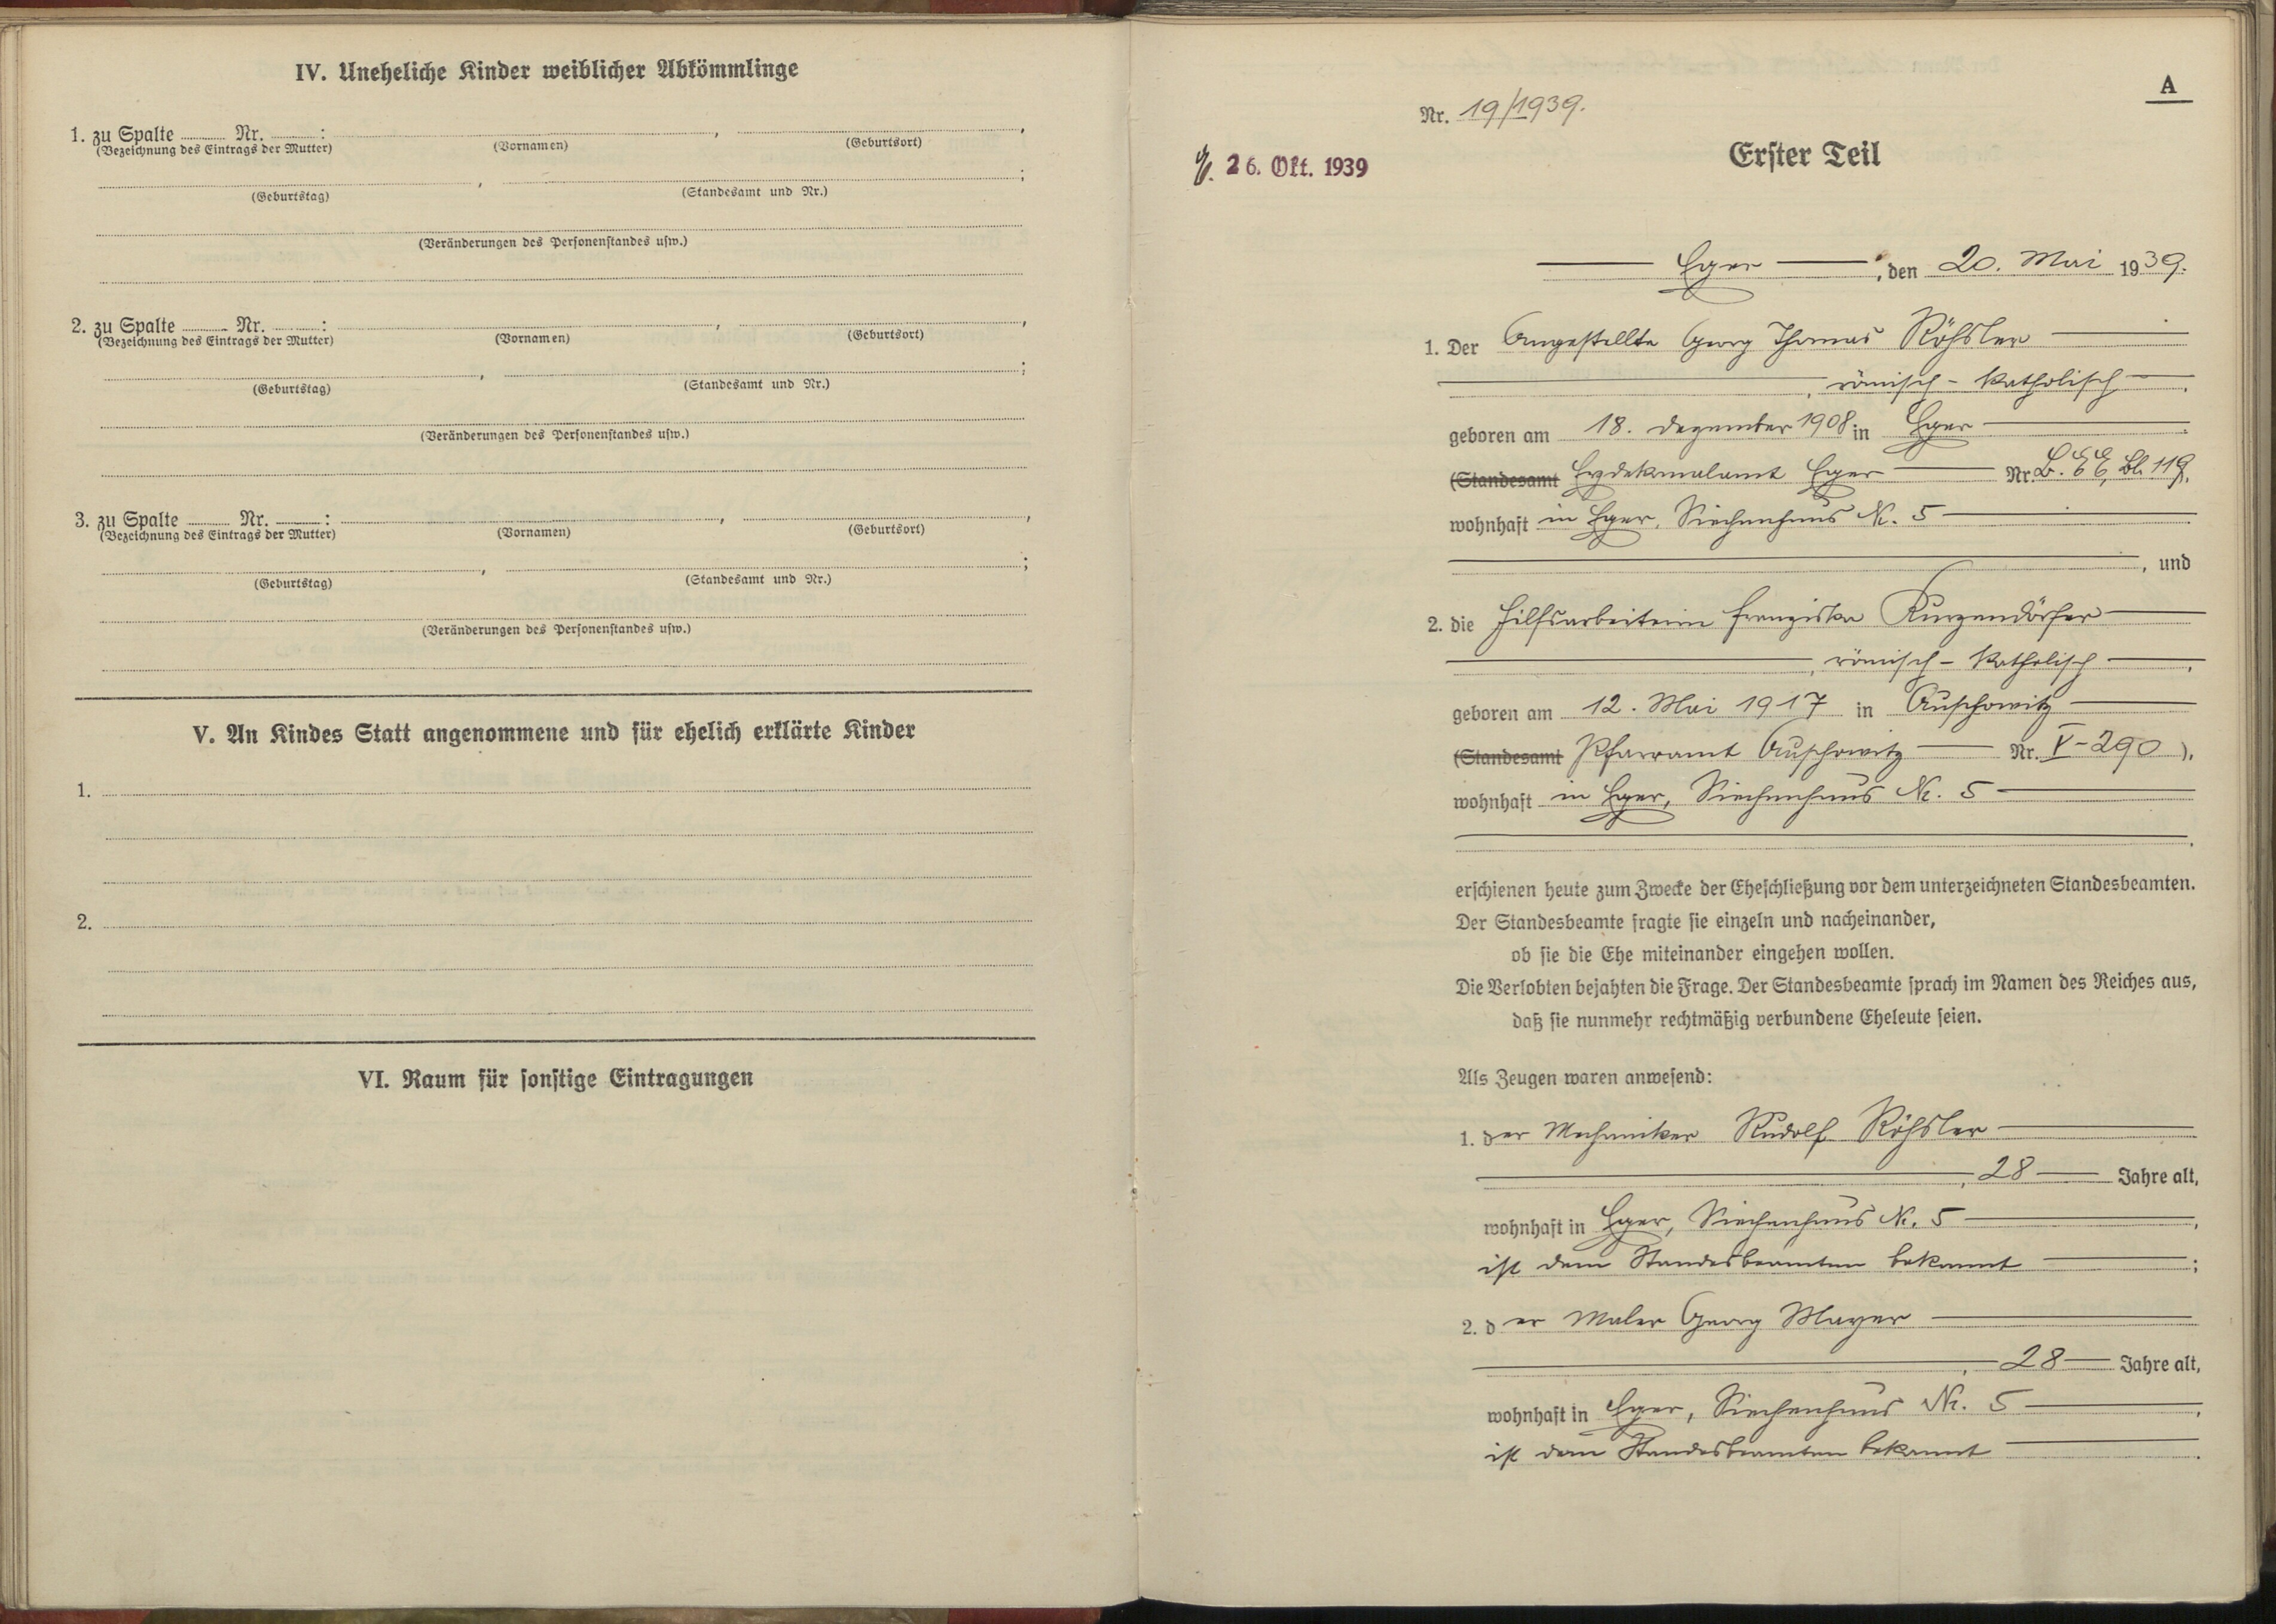 IV. Uneheliche Kinder weiblicher Abkömmlinge
1. zu Spalte ........ Nr. ........ : ........ , ........ ,
(Bezeichnung des Eintrags der Mutter) (Vornamen) (Geburtsort)
........ , ........ ;
(Geburtstag) (Standesamt und Nr.)
(Veränderungen des Personenstandes usw.)
2. zu Spalte ........ Nr. ........ : ........ , ........ ,
(Bezeichnung des Eintrags der Mutter) (Vornamen) (Geburtsort)
........ , ........ ;
(Geburtstag) (Standesamt und Nr.)
(Veränderungen des Personenstandes usw.)
3. zu Spalte ........ Nr. ........ : ........ , ........ ,
(Bezeichnung des Eintrags der Mutter) (Vornamen) (Geburtsort)
........ , ........ ;
(Geburtstag) (Standesamt und Nr.)
(Veränderungen des Personenstandes usw.)
V. An Kindes Statt angenommene und für ehelich erklärte Kinder
1.
2.
VI. Raum für sonstige Eintragungen
A
Nr. 19/1939.
26. Okt. 1939
Erster Teil
Eger, den 20. Mai 1939.
1. Der Angestellte Georg Thomas Röhsler
, römisch-katholisch.
geboren am 18. Dezember 1908 in Eger
(Standesamt Erzdekanalamt Eger Nr. B. EE, Bl. 119.
wohnhaft in Eger, Siechenhaus Nr. 5
, und
2. die Hilfsarbeiterin Franziska Kurzendörfer
, römisch-katholisch,
geboren am 12. Mai 1917 in Auschowitz
(Standesamt Pfarramt Auschowitz Nr. V-290),
wohnhaft in Eger, Siechenhaus Nr. 5
erschienen heute zum Zwecke der Eheschließung vor dem unterzeichneten Standesbeamten.
Der Standesbeamte fragte sie einzeln und nacheinander,
ob sie die Ehe miteinander eingehen wollen.
Die Verlobten bejahten die Frage. Der Standesbeamte sprach im Namen des Reiches aus,
daß sie nunmehr rechtmäßig verbundene Eheleute seien.
Als Zeugen waren anwesend:
1. der Mechaniker Rudolf Röhsler
, 28 Jahre alt,
wohnhaft in Eger, Siechenhaus Nr. 5,
ist dem Standesbeamten bekannt;
2. der Maler Georg Mayer
, 28 Jahre alt,
wohnhaft in Eger, Siechenhaus Nr. 5,
ist dem Standesbeamten bekannt.